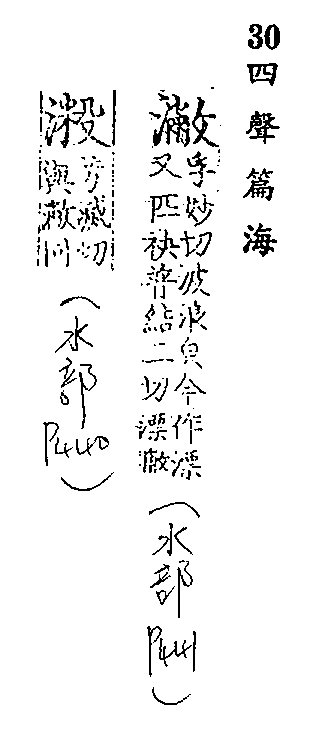 30 四聲篇海
潎
孚妙切波浪皃今作漂
又匹袂普結二切漂潎
（水部 P441）
芳滅切
與潎同
（水部 P440）